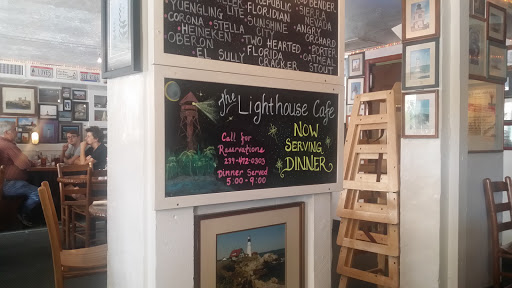 REPUBLIC
BENDER
YUENGLING LITE
FLORIDIAN
SIERRA
CORONA
STELLA
SUNSHINE
ANGRY
NEVADA
ORCHARD
HEINEKEN
TWO HEARTED
PORTER
OBERON
FLORIDA
OATMEAL
EL SULLY
CRACKER
STOUT
The Lighthouse Cafe
Call for
Reservations
239-472-0303
Dinner Served
5:00-9:00
NOW
SERVING
DINNER